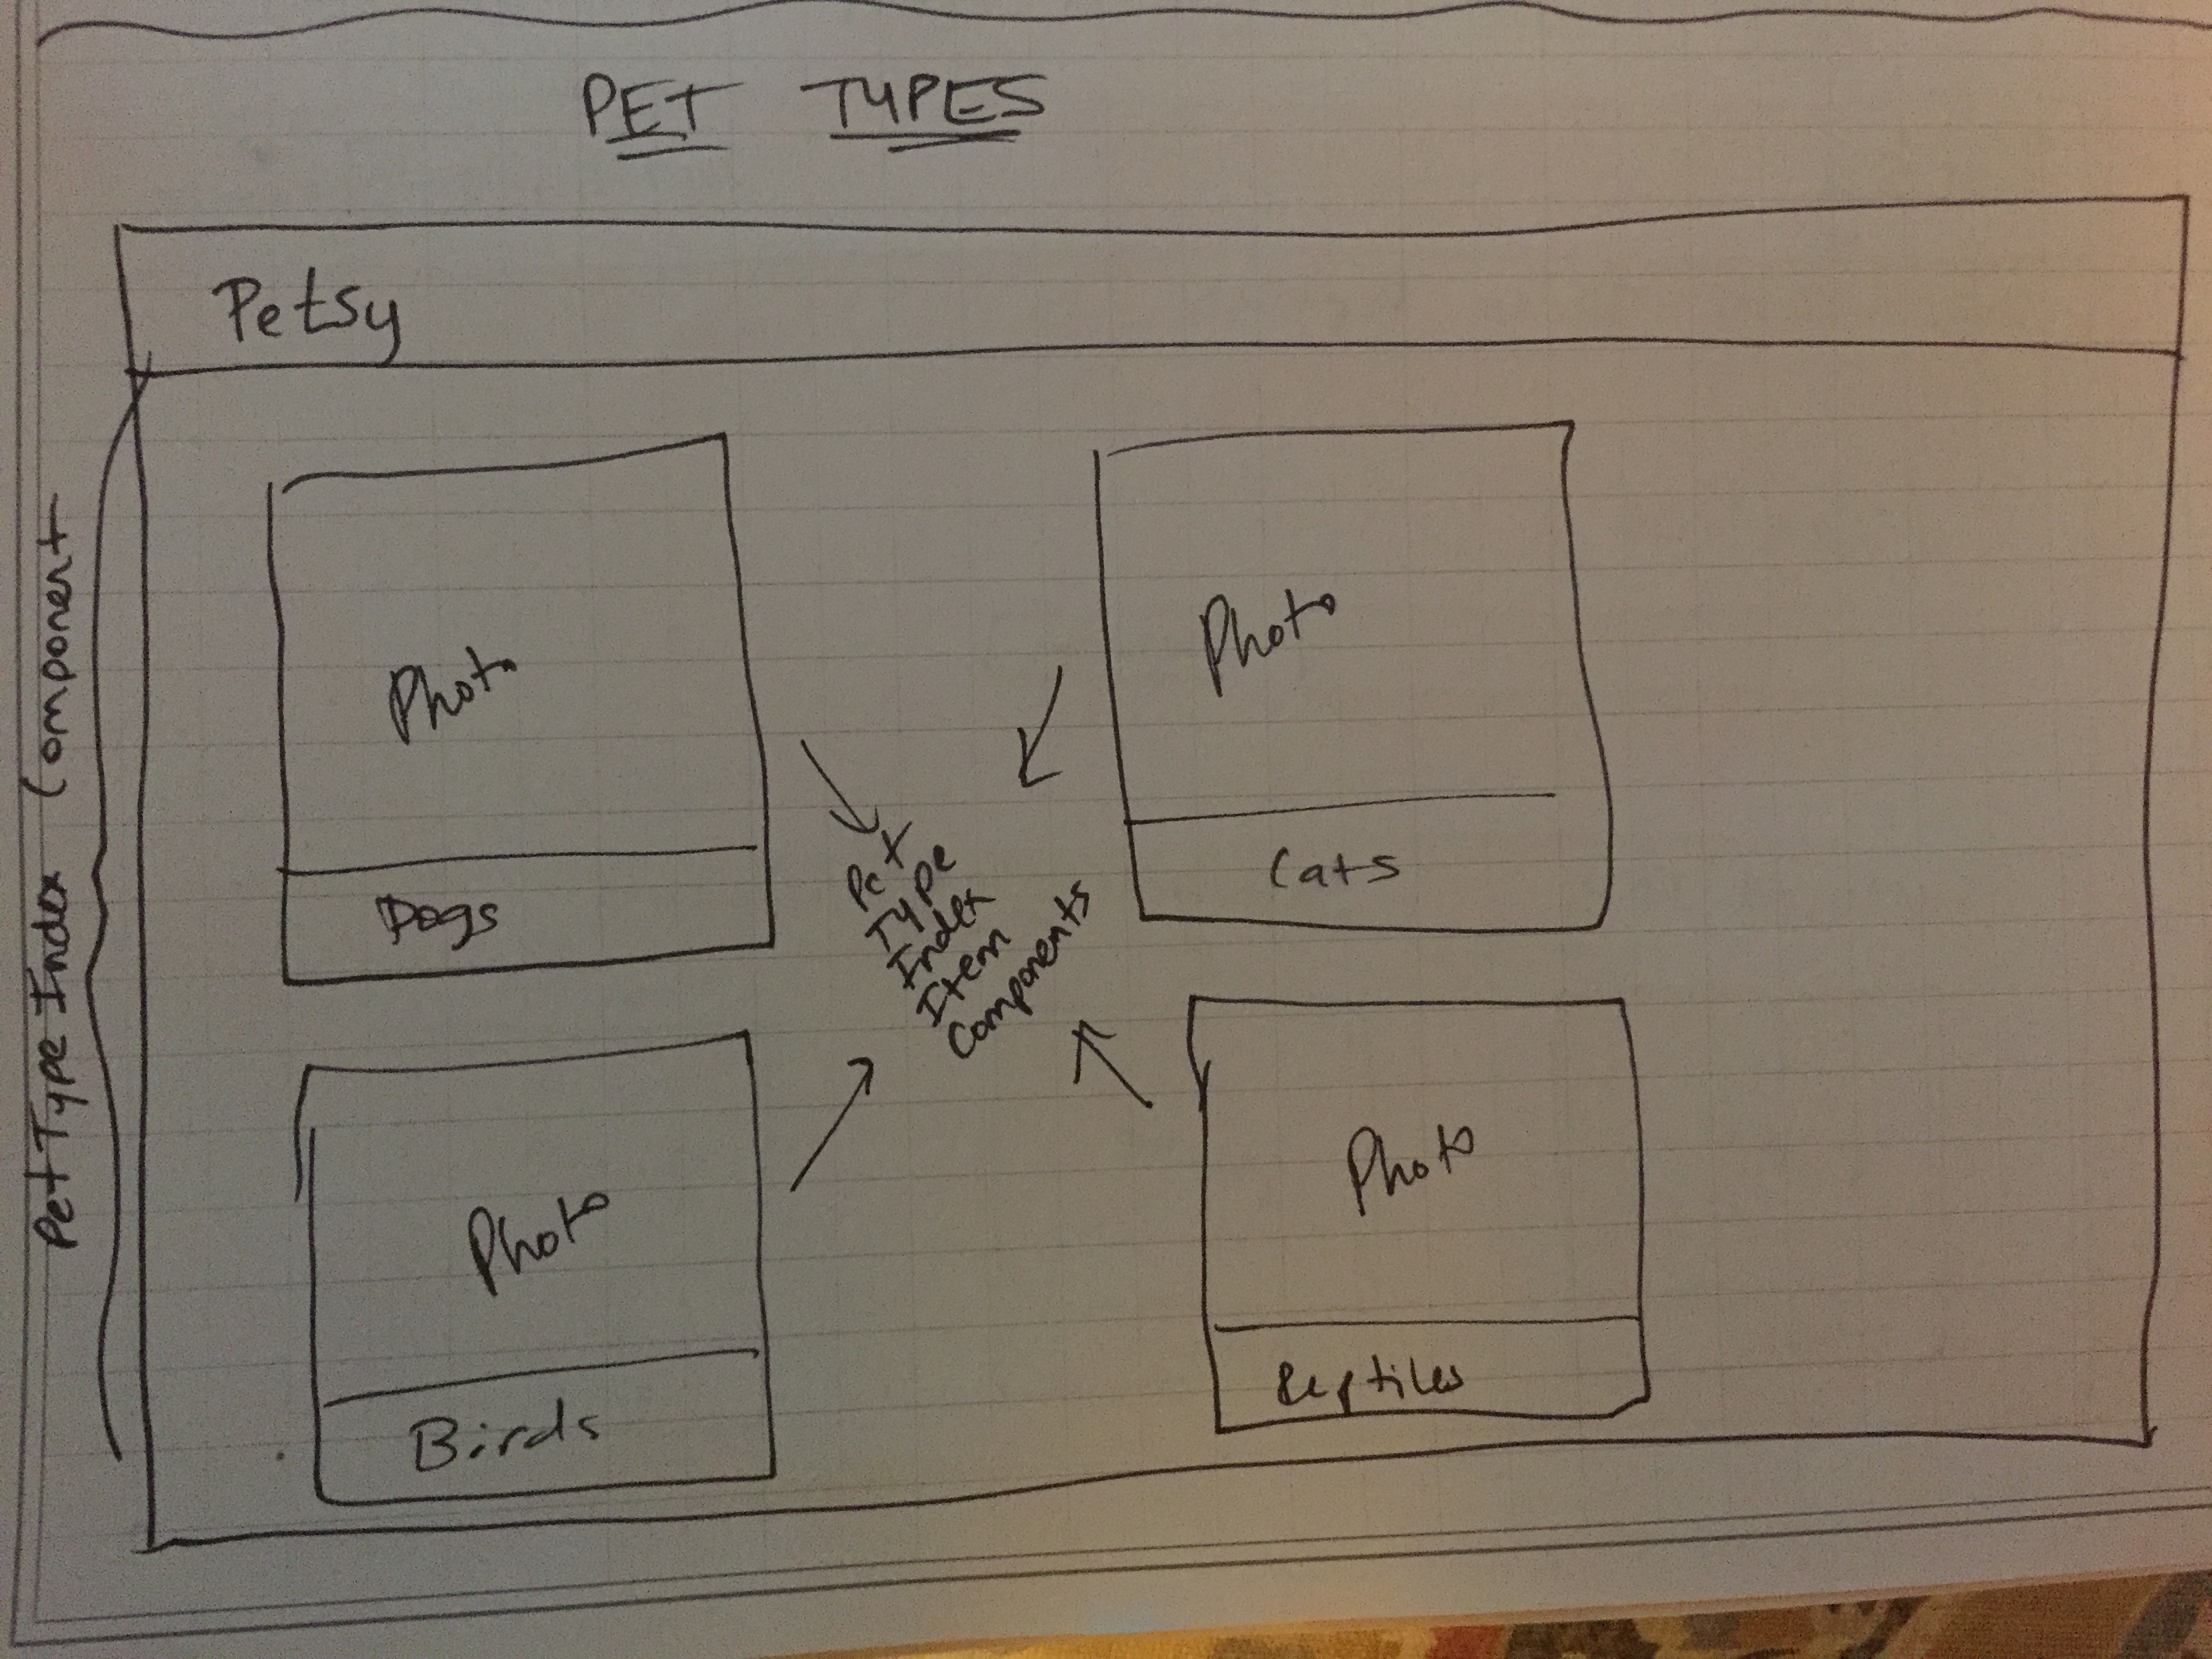 PET TYPES
Petsy
Pet Type Index Component
Photo
Dogs
Photo
Cats
Pet
Type
Index
Item
Components
Photo
Birds
Photo
Reptiles